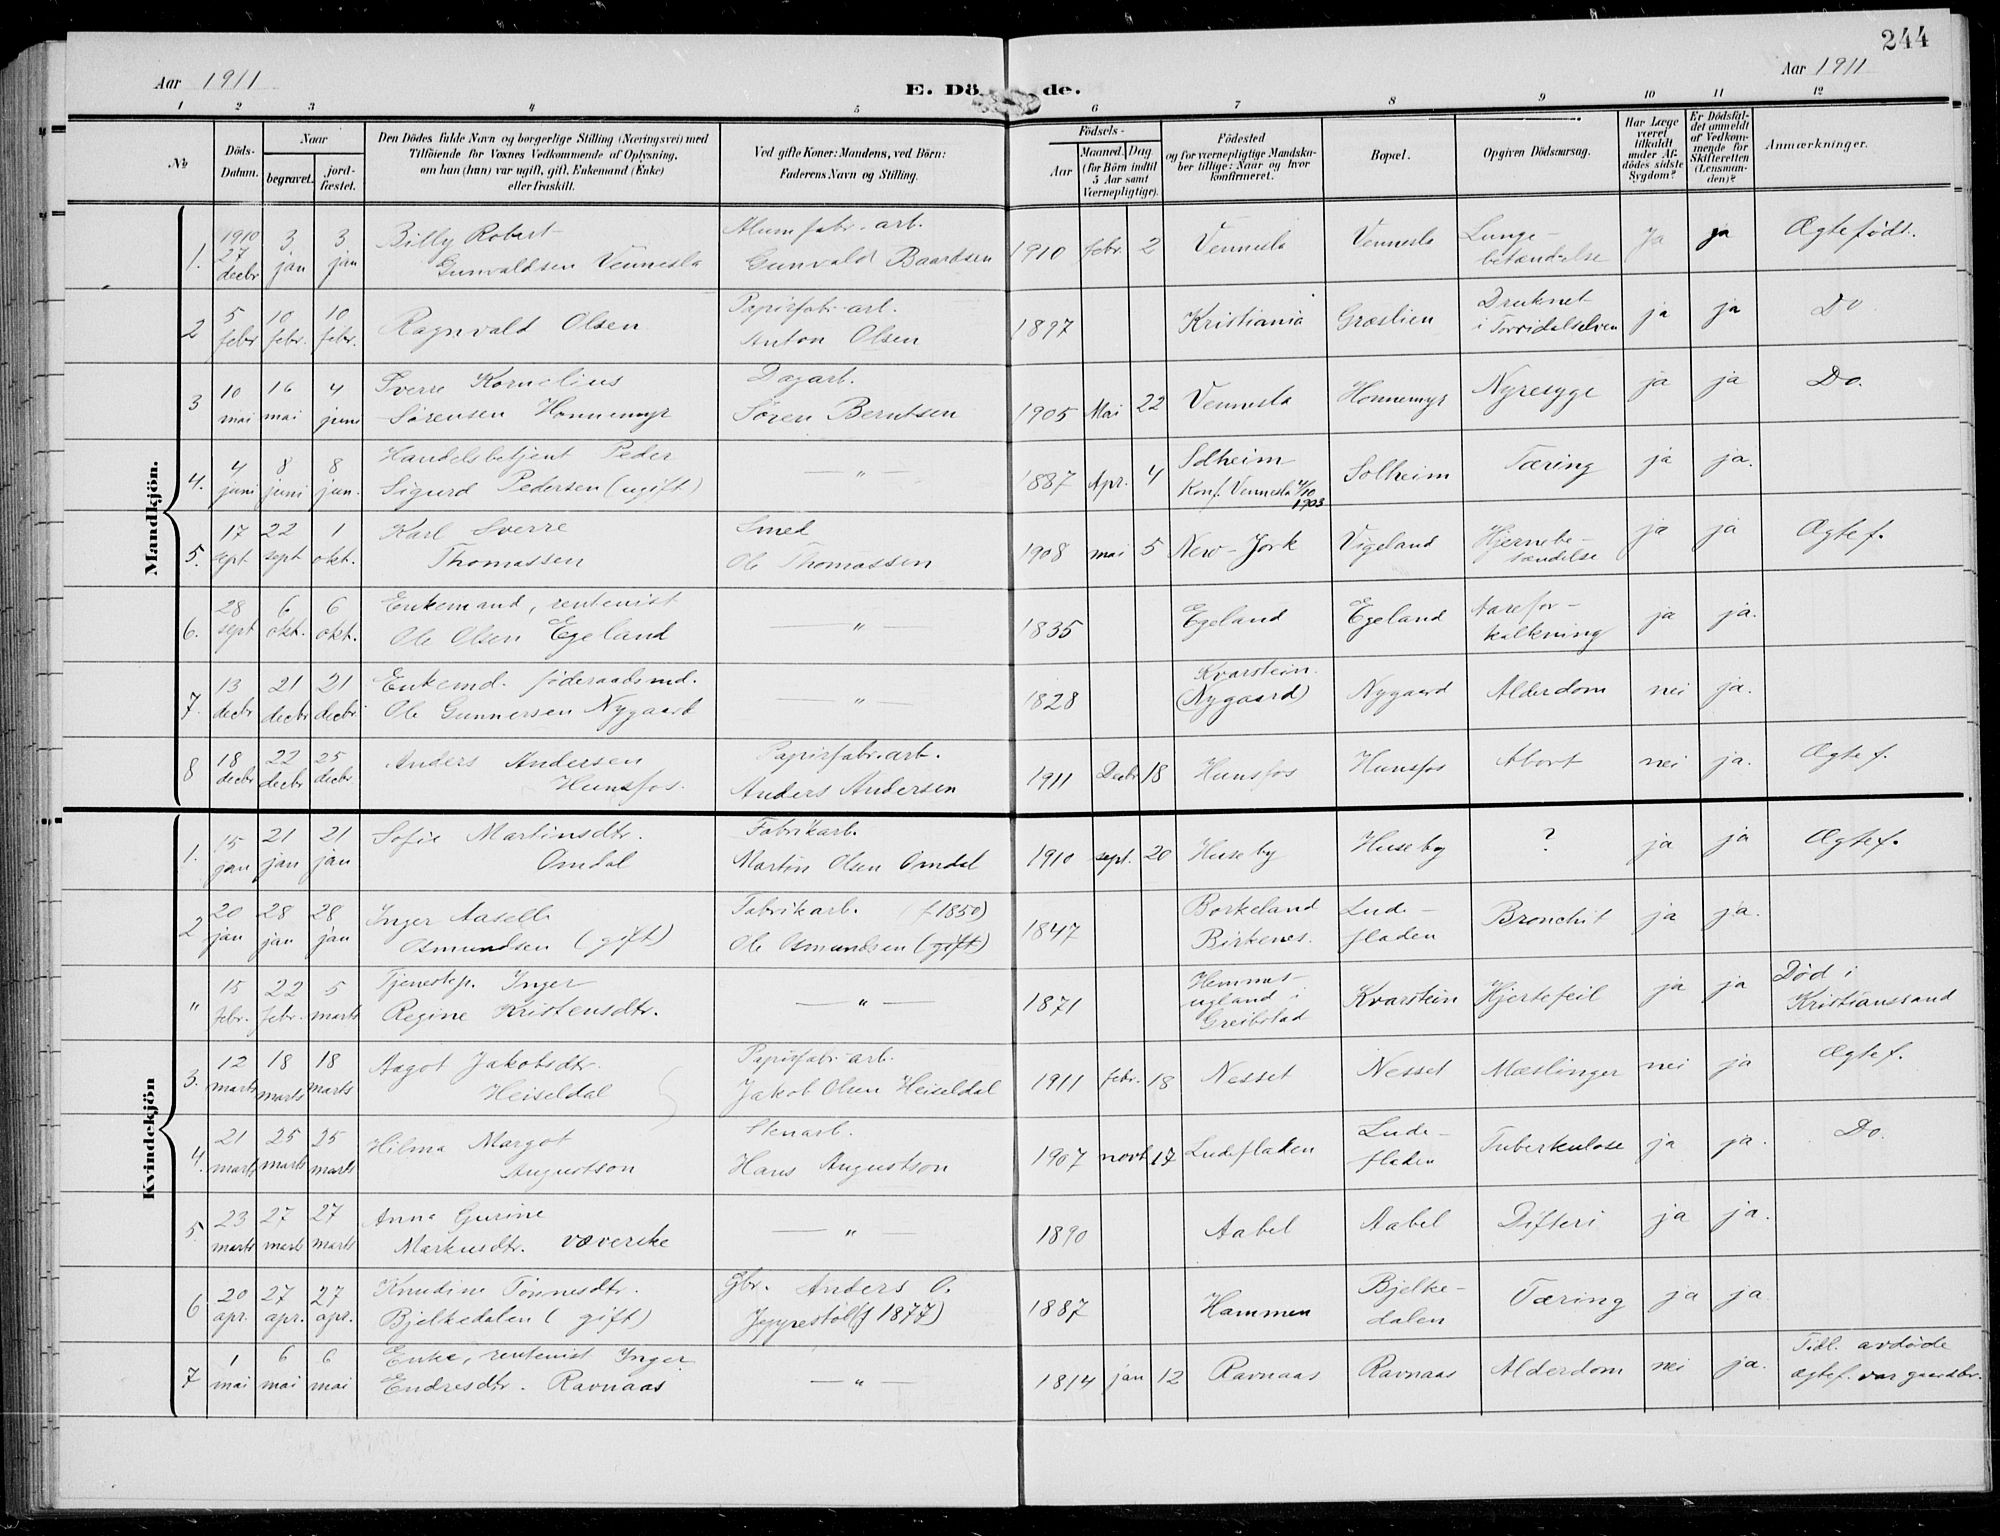 244
Aar 1911
E. Dö de.
Aar 1911
1 2 3 4 5 6 7 8 9 10 11 12
No
Döds-Datum.
Naar
begravet.
jord-fæstet.
Den Dödes fulde Navn og borgerlige Stilling (Næringsvei) med
Tilföiende för Voxnes Vedkommende af Oplysning,
om han (hun) var ugift, gift, Enkemand (Enke)
eller fraskilt.
Ved gifte Koner: Mandens, ved Börn:
Faderens Navn og Stilling.
Födsels-
Aar
Maaned. Dag
(for Börn indtil
5 Aar samt
Værnepligtige).
Födested
og for værnepligtige Mandska-
ber tillige: Naar og hvor
konfirmeret.
Bopæl.
Opgiven Dödsaarsag.
Har Læge
været
tilkaldt
under Af-
dödes sidste
Sygdom?
Er Dödsfal-
det anmeldt
af Vedkom-
mende for
Skifteretten
(Lensman-
den)?
Anmærkninger.
Mandkjön.
1. 1910 27 decbr 3 jan 3 jan Billy Robert Gunvaldsen Vennesla Alumfabr. arb. Gunvald Baardsen 1910 febr. 2 Vennesla Vennesla Lunge-betændelse Ja ja Ægtefödt.
2 5 febr 10 febr. 10 febr. Ragnvald Olsen Papirfabr. arb. Anton Olsen 1897 Kristiania Græslien Druknet i Torridalselven ja ja Do
3 10 mai 16 mai 4 juni Sverre Kornelius Sørensen Honnemyr Dagarb. Søren Berntsen 1905 Mai 22 Vennesla Honnemyr Nyresyge ja ja Do.
4. 4 juni 8 juni 8 jun. Handelsbetjent Peder Sigurd Pedersen (ugift) — " — 1887 Apr. 4 Solheim Konf. Vennesla 4/10 1903 Solheim Tæring ja ja.
5. 17 sept 22 sept 1 okt. Karl Sverre Thomassen Smed Ole Thomassen 1908 mai 5 New-York Vigeland Hjernebe-tændelse ja ja Ægtef.
6. 28 sept 6 okt. 6 okt. Enkemand, rentenist Ole Olsen Egeland — " — 1835 Egeland Egeland Aarefor-kalkning ja ja.
7. 13 decbr 21 decbr 21 decbr Enkemd. føderaadsmd. Ole Gunnersen Nygaard — " — 1828 Kvarstein. (Nygaard) Nygaard Alderdom nei ja.
8 18 decbr 22 decbr 25 decbr. Anders Andersen Hunsfos. Papirfabr. arb. Anders Andersen 1911 Decbr 18 Hunsfos Hunsfos Abort nei ja. Ægtef.
Kvindekjön
1. 15 jan 21 jan 21 jan Sofie Martinsdtr. Omdal Fabrikarb. Martin Olsen Omdal 1910 sept. 20 Huseby Huseby ? ja ja Ægtef.
2 20 jan 28 jan 28 jan Inger Aaselle Osmundsen (gift) Fabrikarb. (f 1850) Ole Osmundsen (gift) 1847 Borkeland Birkenes. Lude-fladen Bronchit ja ja.
" 15 febr. 22 febr. 5 marts Tjenestep. Inger Regine Kristensdtr. — " — 1871 Hemmes-ugland i Greibstad Kvarstein Hjertefeil ja ja Død i Kristianssand
3. 12 marts 18 marts 18 marts Aagot Jakobsdtr. Heiseldal Papirfabr. arb. Jakob Olsen Heiseldal 1911 febr. 18 Nesset Nesset Mæslinger nei ja Ægtef.
4. 21 marts 25 marts 25 marts Hilma Margot Augustson Stenarb. Hans Augustson 1907 novbr 17 Ludefladen Lude-fladen Tuberkulose ja ja. Do.
5. 23 marts 27 marts 27 marts Anna Gurine Markusdtr. væverske — " — 1890 Aabel Aabel Difteri ja ja.
6 20 apr. 27 apr. 27 apr. Knudine Tønnesdtr. Bjelkedalen (gift) Gbr. Anders O. Jeppestöl (f 1877) 1887 Hammen Bjelke-dalen Tæring ja ja.
7 1 mai 6 mai 6 mai Enke, rentenist Inger Endresdtr. Ravnaas — " — 1814 jan 12 Ravnaas Ravnaas Alderdom nei ja. Tidl. avdøde ægtef. var gaardbr.